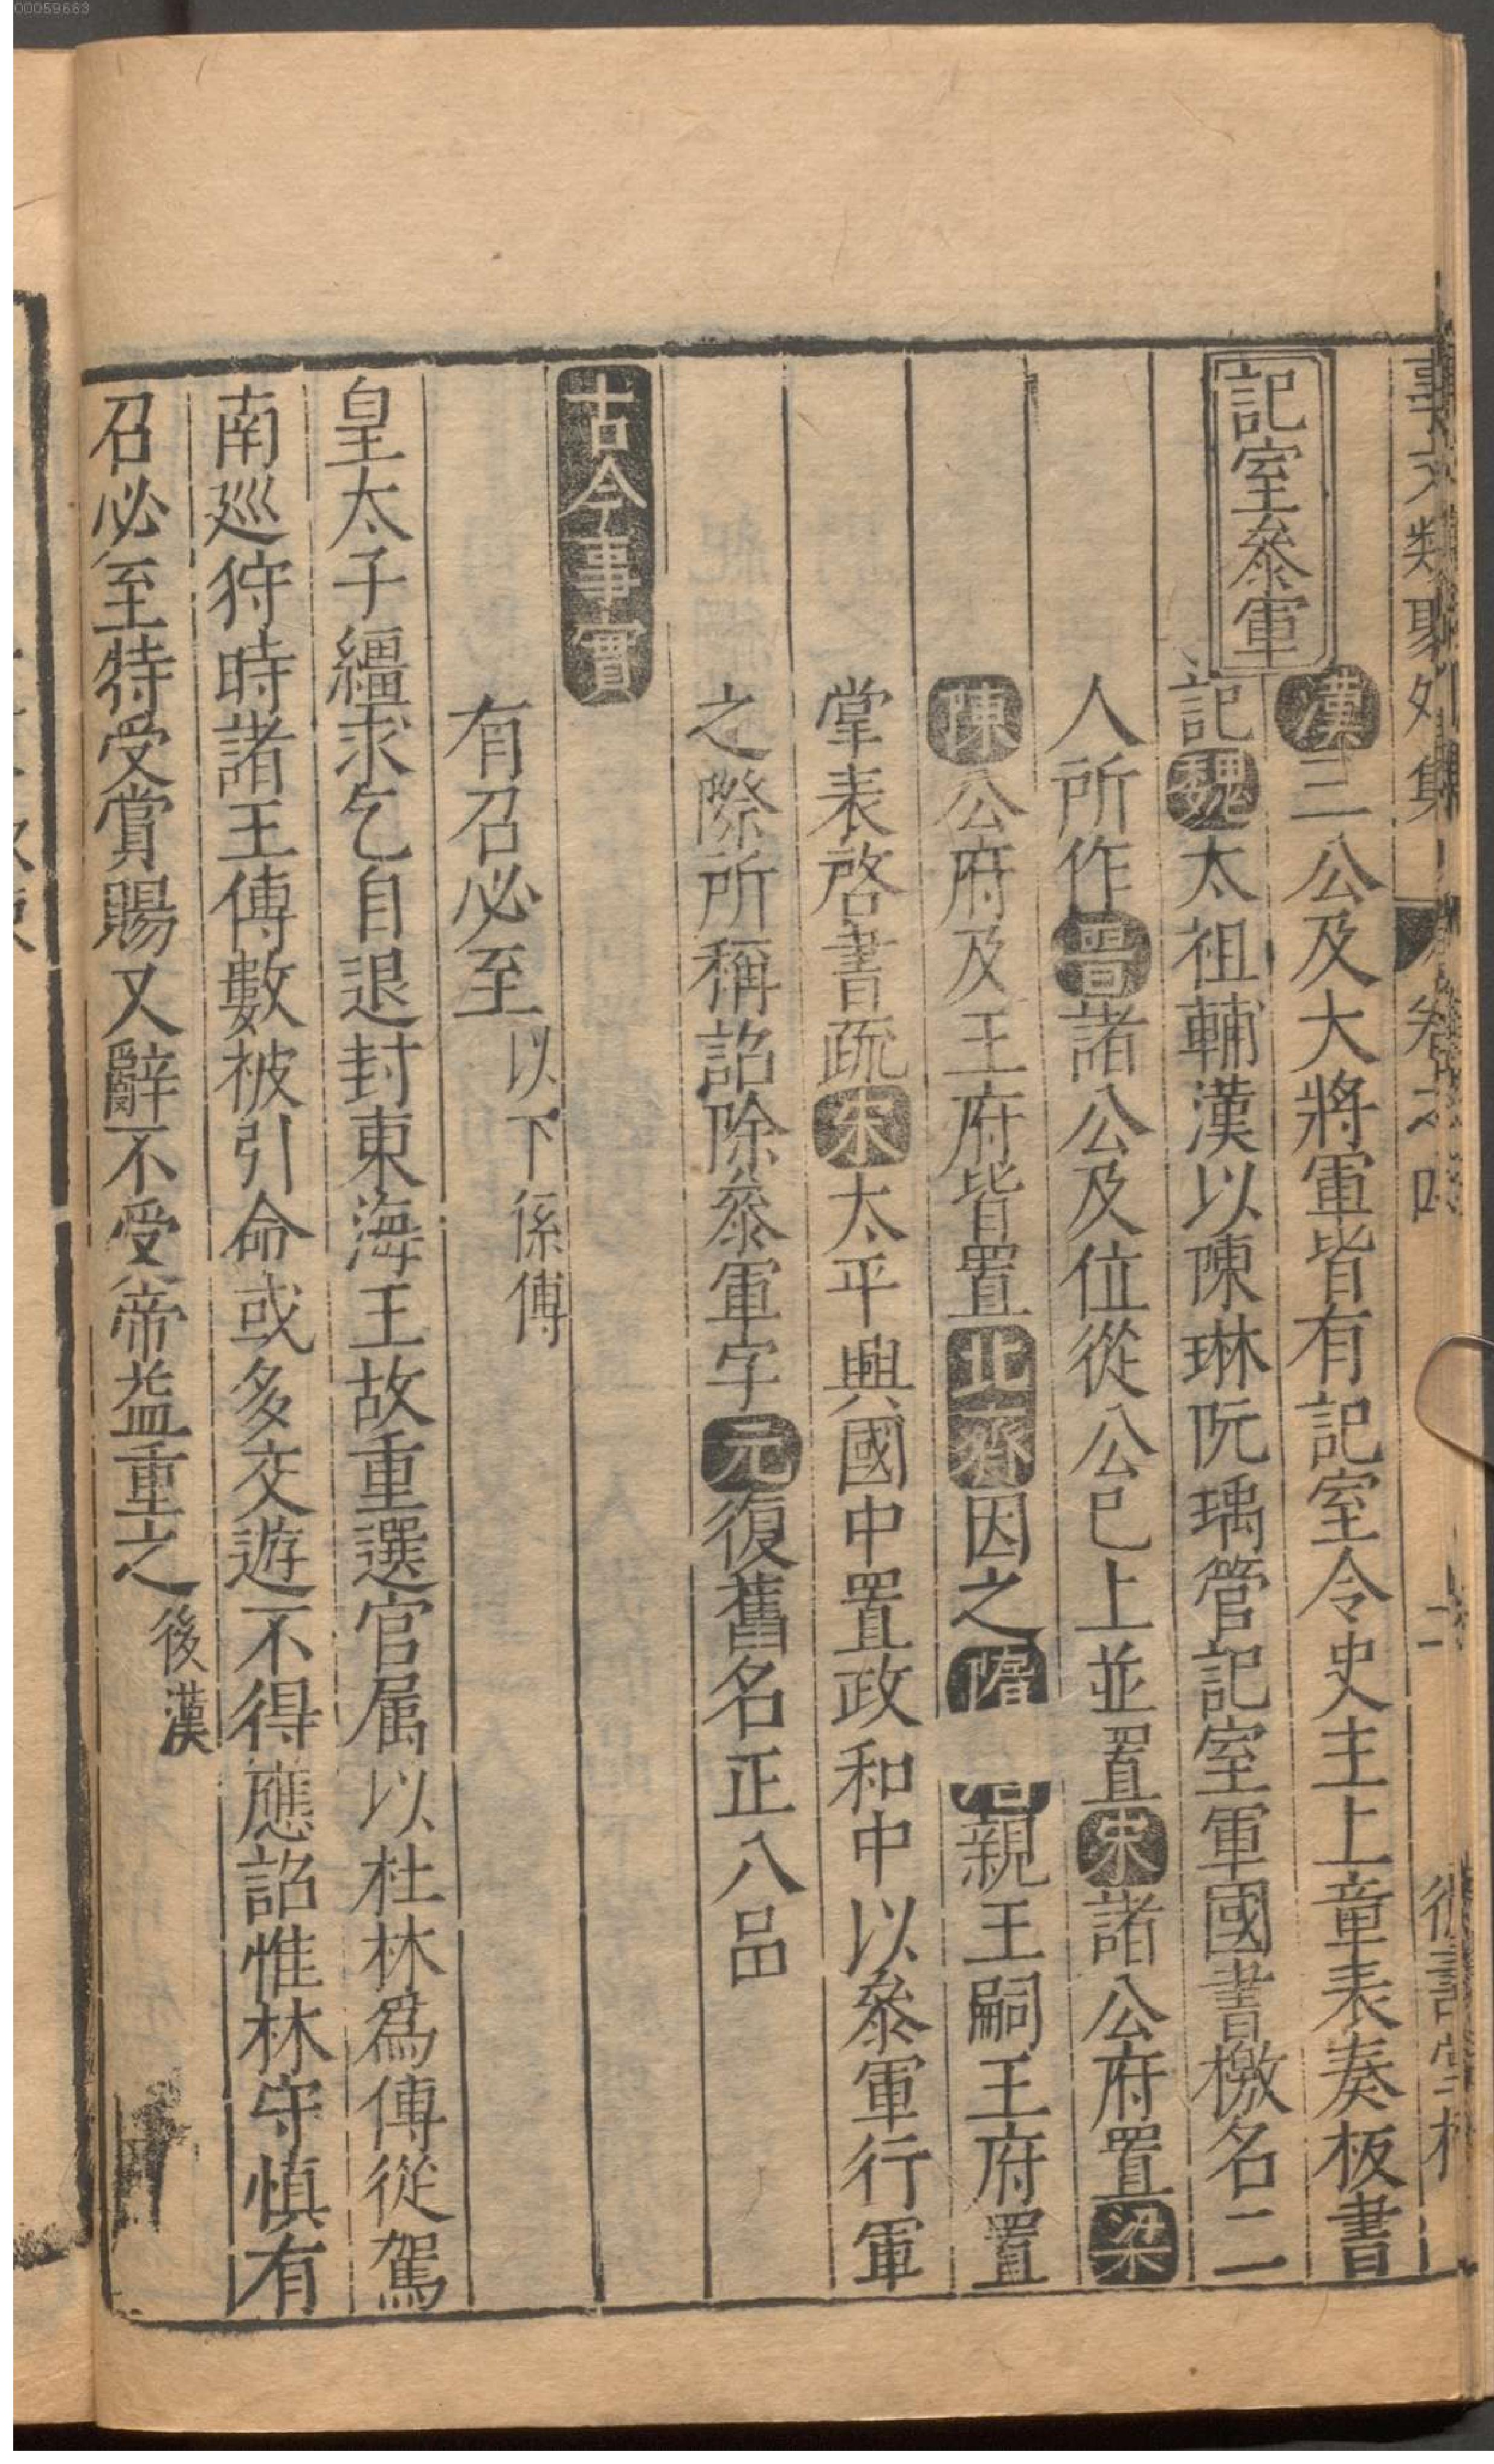 00059663
事文類聚外集 卷之四 二
記室參軍
漢三公及大將軍皆有記室令史主上章表奏板書
記魏太祖輔漢以陳琳阮瑀管記室軍國書檄名二
人所作晉諸公及位從公已上並置宋諸公府置梁
陳公府及王府皆置北齊因之隋 唐親王嗣王府置
掌表啓書疏宋太平興國中置政和中以參軍行軍
之際所稱詔除參軍字元復舊名正八品
古今事實
有召必至以下係傅
皇太子彊求乞自退封東海王故重選官属以杜林爲傅從駕
南廵狩時諸王傅數被引命或多交遊不得應詔惟林守慎有
召必至特受賞賜又辭不受帝益重之後漢